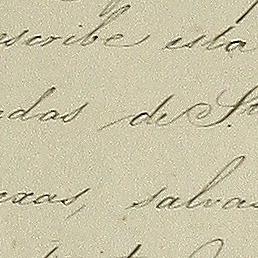 escribe esta
das de S.
exas, salvas